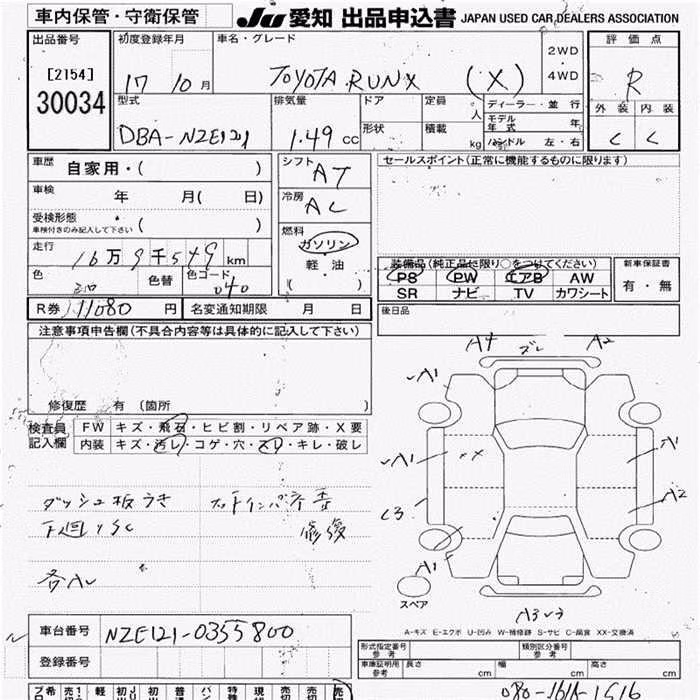 車内保管・守衛保管
JU 愛知 出品申込書 JAPAN USED CAR DEALERS ASSOCIATION
出品番号
[2154]
30034
初度登録年月
17 10月
車名・グレード
TOYOTA RUNX (X)
2WD
4WD
評価点
R
外装 内装
C C
型式
DBA-NZE121
排気量
1.49 cc
ドア
形状
定員
人
積載
kg
ディーラー・並行
モデル年式 年
ハンドル 左・右
車歴 自家用・( )
車検 年 月( 日)
受検形態
車検付きのみ記入して下さい ( )
走行 16万9千549km
色
色替
色コード
040
シフト
AT
冷房
AC
燃料
ガソリン
軽・油
( )
セールスポイント(正常に機能するものに限ります)
装備品(純正品に限り○をつけてください)
PS PW エアB AW
SR ナビ TV カワシート
新車保証書
有・無
R券 11080円
名変通知期限 月 日
後日品
注意事項申告欄(不具合内容等は具体的に記入して下さい)
修復歴 有 〔箇所 〕
検査員
記入欄
FW キズ・飛石・ヒビ割・リペア跡・X要
内装 キズ・汚レ・コゲ・穴・スレ・キレ・破レ
ダッシュ板うき
下廻りSC
修復
各AU
A4 ズレ A2
A1
A1
A1
A2
C3
A1
スペア
A3
A-キズ E-エクボ U-凹み W-補修跡 S-サビ C-腐食 XX-交換済
車台番号 NZE121-0355800
登録番号
形式指定番号
参考
類別区分番号
参考
車庫証明用
参考
長さ cm
幅 cm
高さ cm